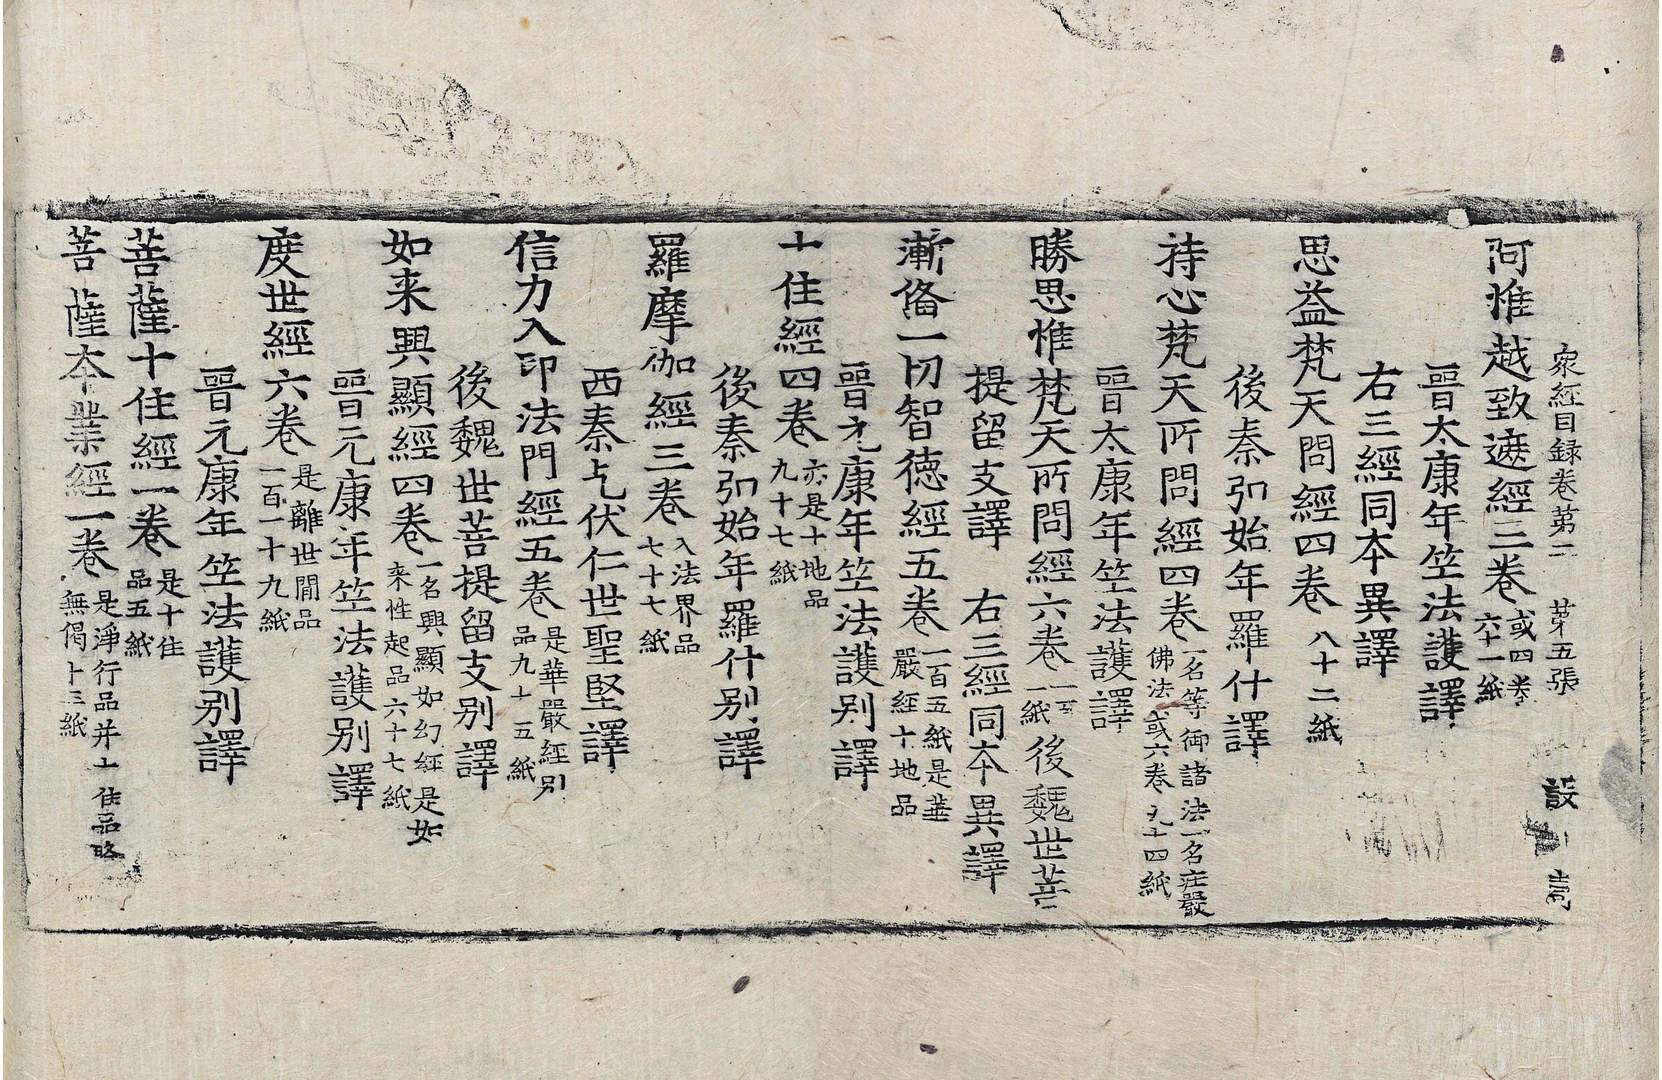 衆經目録卷第二　第五張　設
阿惟越致遮經三卷 或四卷 六十一紙
晉太康年竺法護譯
右三經同本異譯
思益梵天問經四卷 八十二紙
後秦弘始年羅什譯
持心梵天所問經四卷 一名等御諸法一名庄嚴 佛法或六卷九十四紙
晉太康年竺法護譯
勝思惟梵天所問經六卷 一百 一紙 後魏世菩
提留支譯　右三經同本異譯
漸俻一切智德經五卷 一百五紙是華 嚴經十地品
晉元康年竺法護别譯
十住經四卷 亦是十地品 九十七紙
後秦弘始年羅什别譯
羅摩伽經三卷 入法界品 七十七紙
西秦乞伏仁世聖堅譯
信力入印法門經五卷 是華嚴經别 品九十五紙
後魏世菩提留支别譯
如来興顯經四卷 一名興顯如幻經是如 来性起品六十七紙
晉元康年竺法護别譯
度世經六卷 是離世間品 一百一十九紙
晉元康年竺法護别譯
菩薩十住經一卷 是十住 品五紙
菩薩本業經一卷 是淨行品并十住品略 無偈十三紙